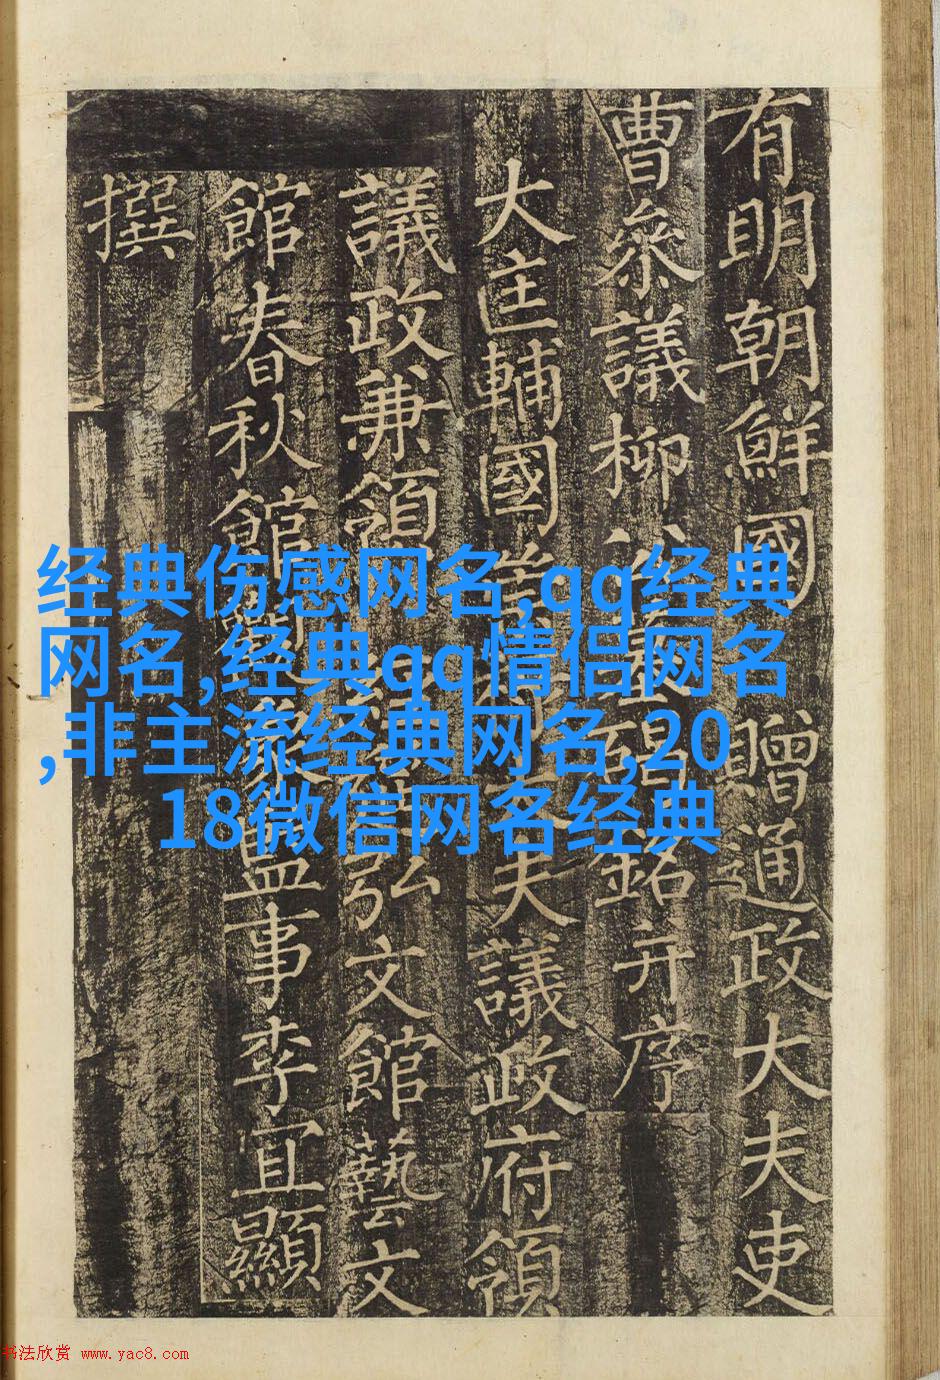 有明朝鮮國 贈通政大夫吏
曹叅議柳公墓碣銘并序
大匡輔國崇祿大夫議政府領
議政兼領 弘文館藝文
館春秋館觀象監事李宜顯
撰
经典伤感网名,qq经典
网名,经典qq情侣网名
,非主流经典网名,20
18微信网名经典
书法欣赏 www.yac8.com